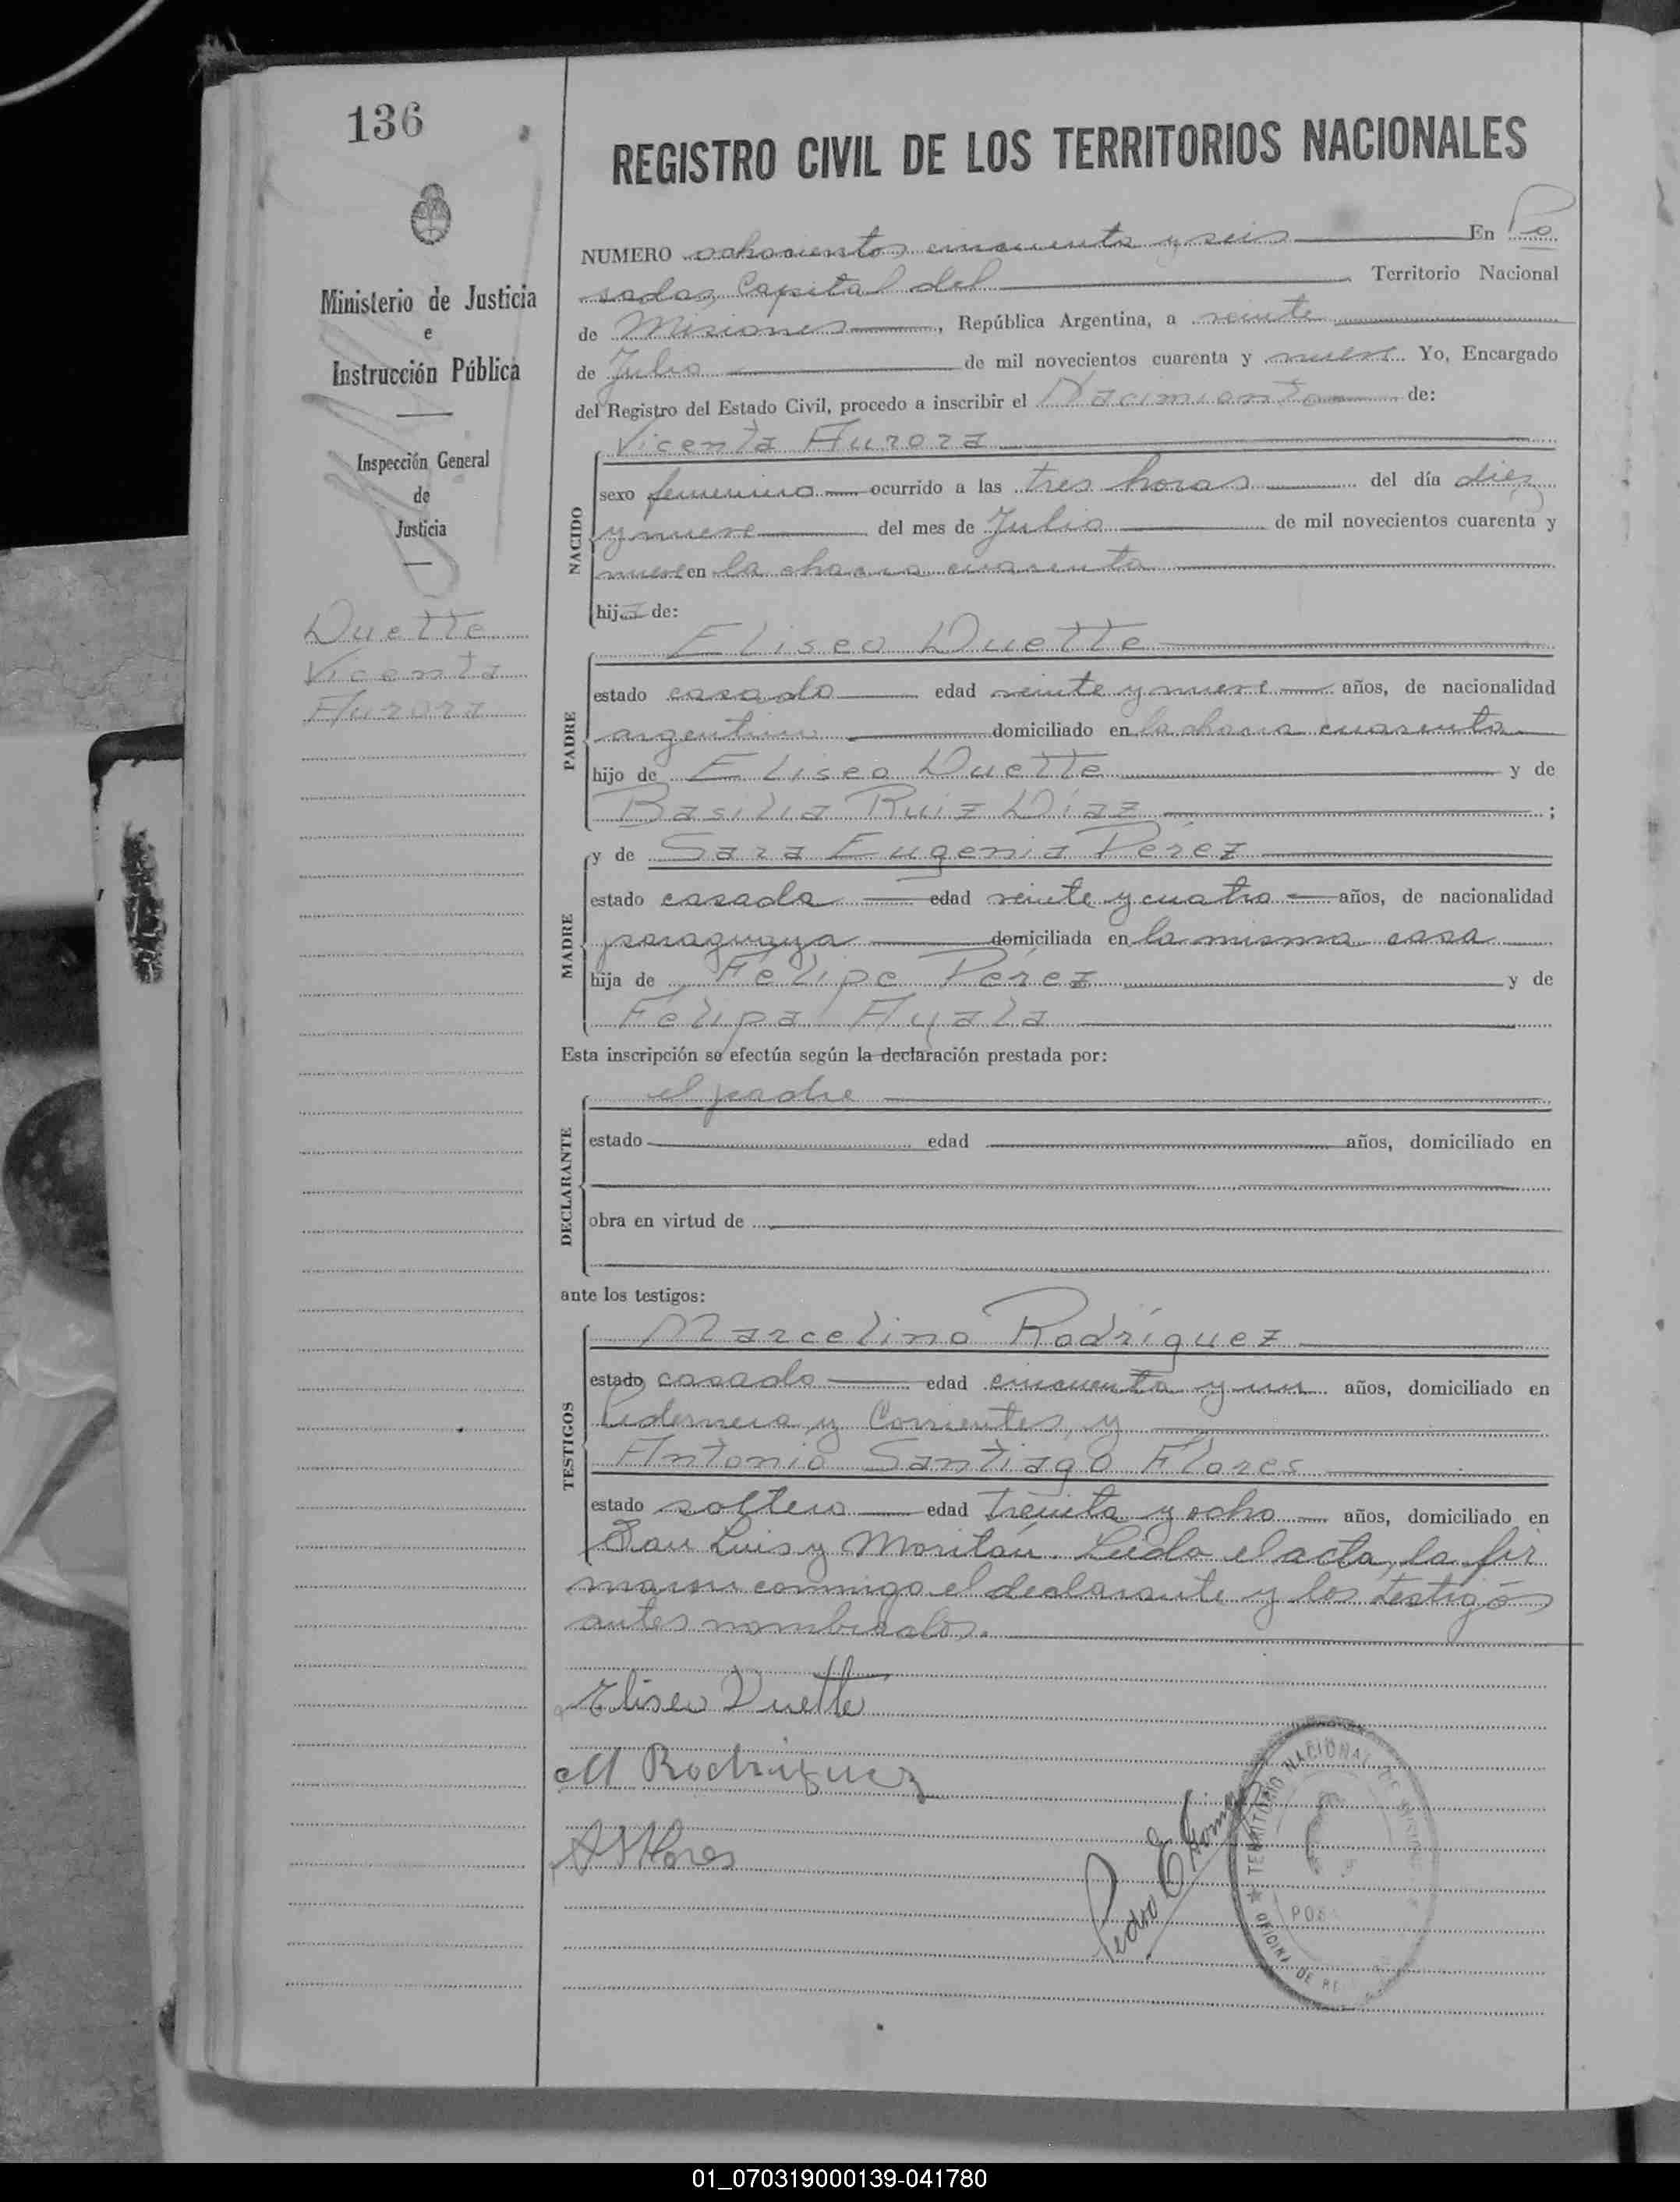 136
Ministerio de Justicia
e
Instrucción Pública
Inspección General
de
Justicia
Duette
Vicenta
Aurora
REGISTRO CIVIL DE LOS TERRITORIOS NACIONALES
NUMERO ochocientos cincuenta y seis En Po
sadas, Capital del Territorio Nacional
de Misiones, República Argentina, a veinte
de Julio de mil novecientos cuarenta y nueve Yo, Encargado
del Registro del Estado Civil, procedo a inscribir el Nacimiento de:
Vicenta Aurora
NACIDO
sexo femenino ocurrido a las tres horas del día diez
y nueve del mes de Julio de mil novecientos cuarenta y
nueve en la chacra cuarenta
hija de:
Eliseo Duette
PADRE
estado casado edad veinte y nueve años, de nacionalidad
argentino domiciliado en la chacra cuarenta
hijo de Eliseo Duette y de
Basilia Ruiz Díaz ;
y de Sara Eugenia Pérez
MADRE
estado casada edad veinte y cuatro años, de nacionalidad
paraguaya domiciliada en la misma casa
hija de Felipe Pérez y de
Felipa Ayala
Esta inscripción se efectúa según la declaración prestada por:
el padre
DECLARANTE
estado edad años, domiciliado en
obra en virtud de
ante los testigos:
Marcelino Rodríguez
TESTIGOS
estado casado edad cincuenta y un años, domiciliado en
Pedernera y Corrientes, y
Antonio Santiago Flores
estado soltero edad treinta y ocho años, domiciliado en
San Luis y Moritán. Leída el acta, la fir
maron conmigo el declarante y los testigos
antes nombrados.
Eliseo Duette
M Rodriguez
A S Flores
Pedro E
TERRITORIO NACIONAL DE MISIONES
POS
OFICINA DE RE
01_070319000139-041780